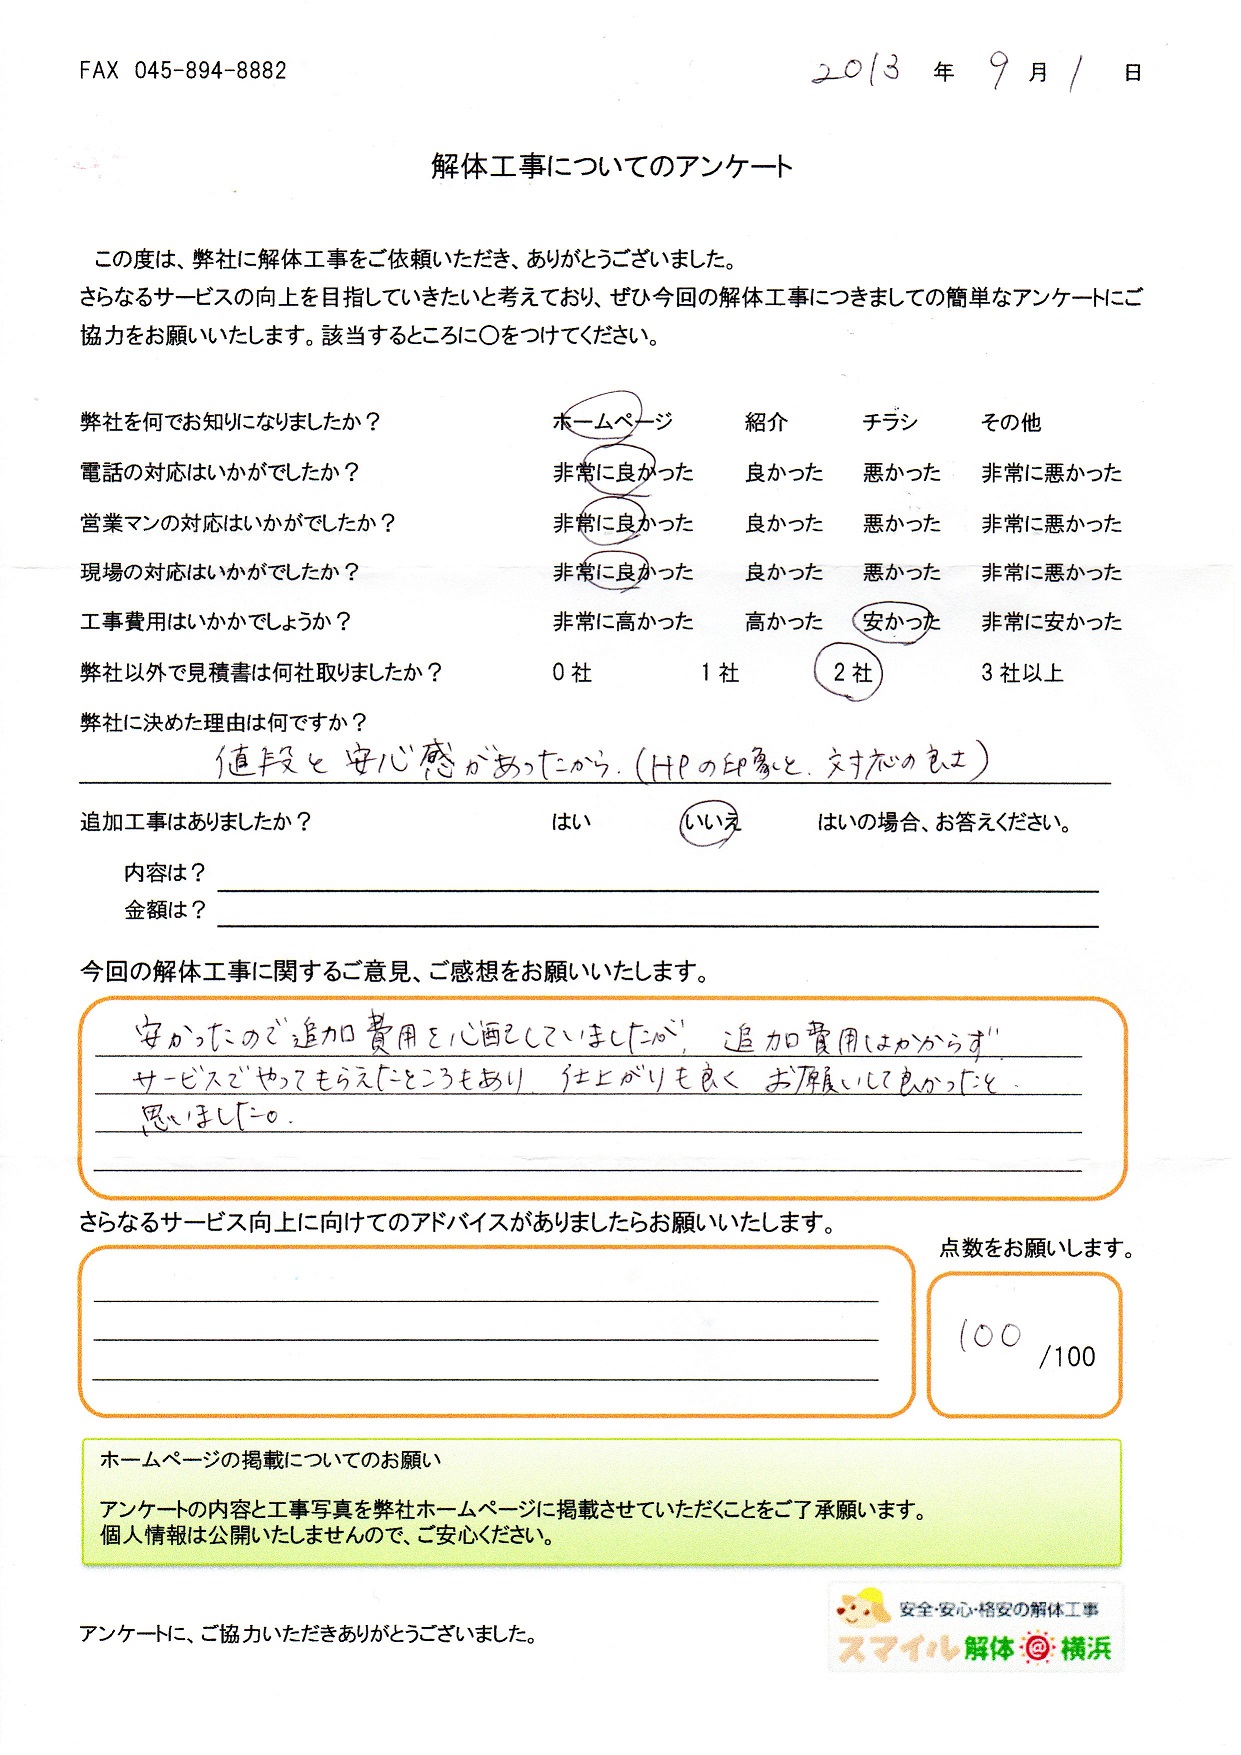 FAX 045-894-8882
2013 年 9 月 1 日
解体工事についてのアンケート
この度は、弊社に解体工事をご依頼いただき、ありがとうございました。
さらなるサービスの向上を目指していきたいと考えており、ぜひ今回の解体工事につきましての簡単なアンケートにご
協力をお願いいたします。該当するところに〇をつけてください。
弊社を何でお知りになりましたか? ホームページ 紹介 チラシ その他
電話の対応はいかがでしたか? 非常に良かった 良かった 悪かった 非常に悪かった
営業マンの対応はいかがでしたか? 非常に良かった 良かった 悪かった 非常に悪かった
現場の対応はいかがでしたか? 非常に良かった 良かった 悪かった 非常に悪かった
工事費用はいかかでしょうか? 非常に高かった 高かった 安かった 非常に安かった
弊社以外で見積書は何社取りましたか? 0社 1社 2社 3社以上
弊社に決めた理由は何ですか?
値段と安心感があったから.(HPの印象と、対応の良さ)
追加工事はありましたか? はい いいえ はいの場合、お答えください。
内容は?
金額は?
今回の解体工事に関するご意見、ご感想をお願いいたします。
安かったので追加費用を心配していましたが、追加費用はかからず
サービスでやってもらえたところもあり 仕上がりも良く お願いして良かったと
思いました。
さらなるサービス向上に向けてのアドバイスがありましたらお願いいたします。
点数をお願いします。
100 /100
ホームページの掲載についてのお願い
アンケートの内容と工事写真を弊社ホームページに掲載させていただくことをご了承願います。
個人情報は公開いたしませんので、ご安心ください。
アンケートに、ご協力いただきありがとうございました。
安全・安心・格安の解体工事
スマイル解体@横浜